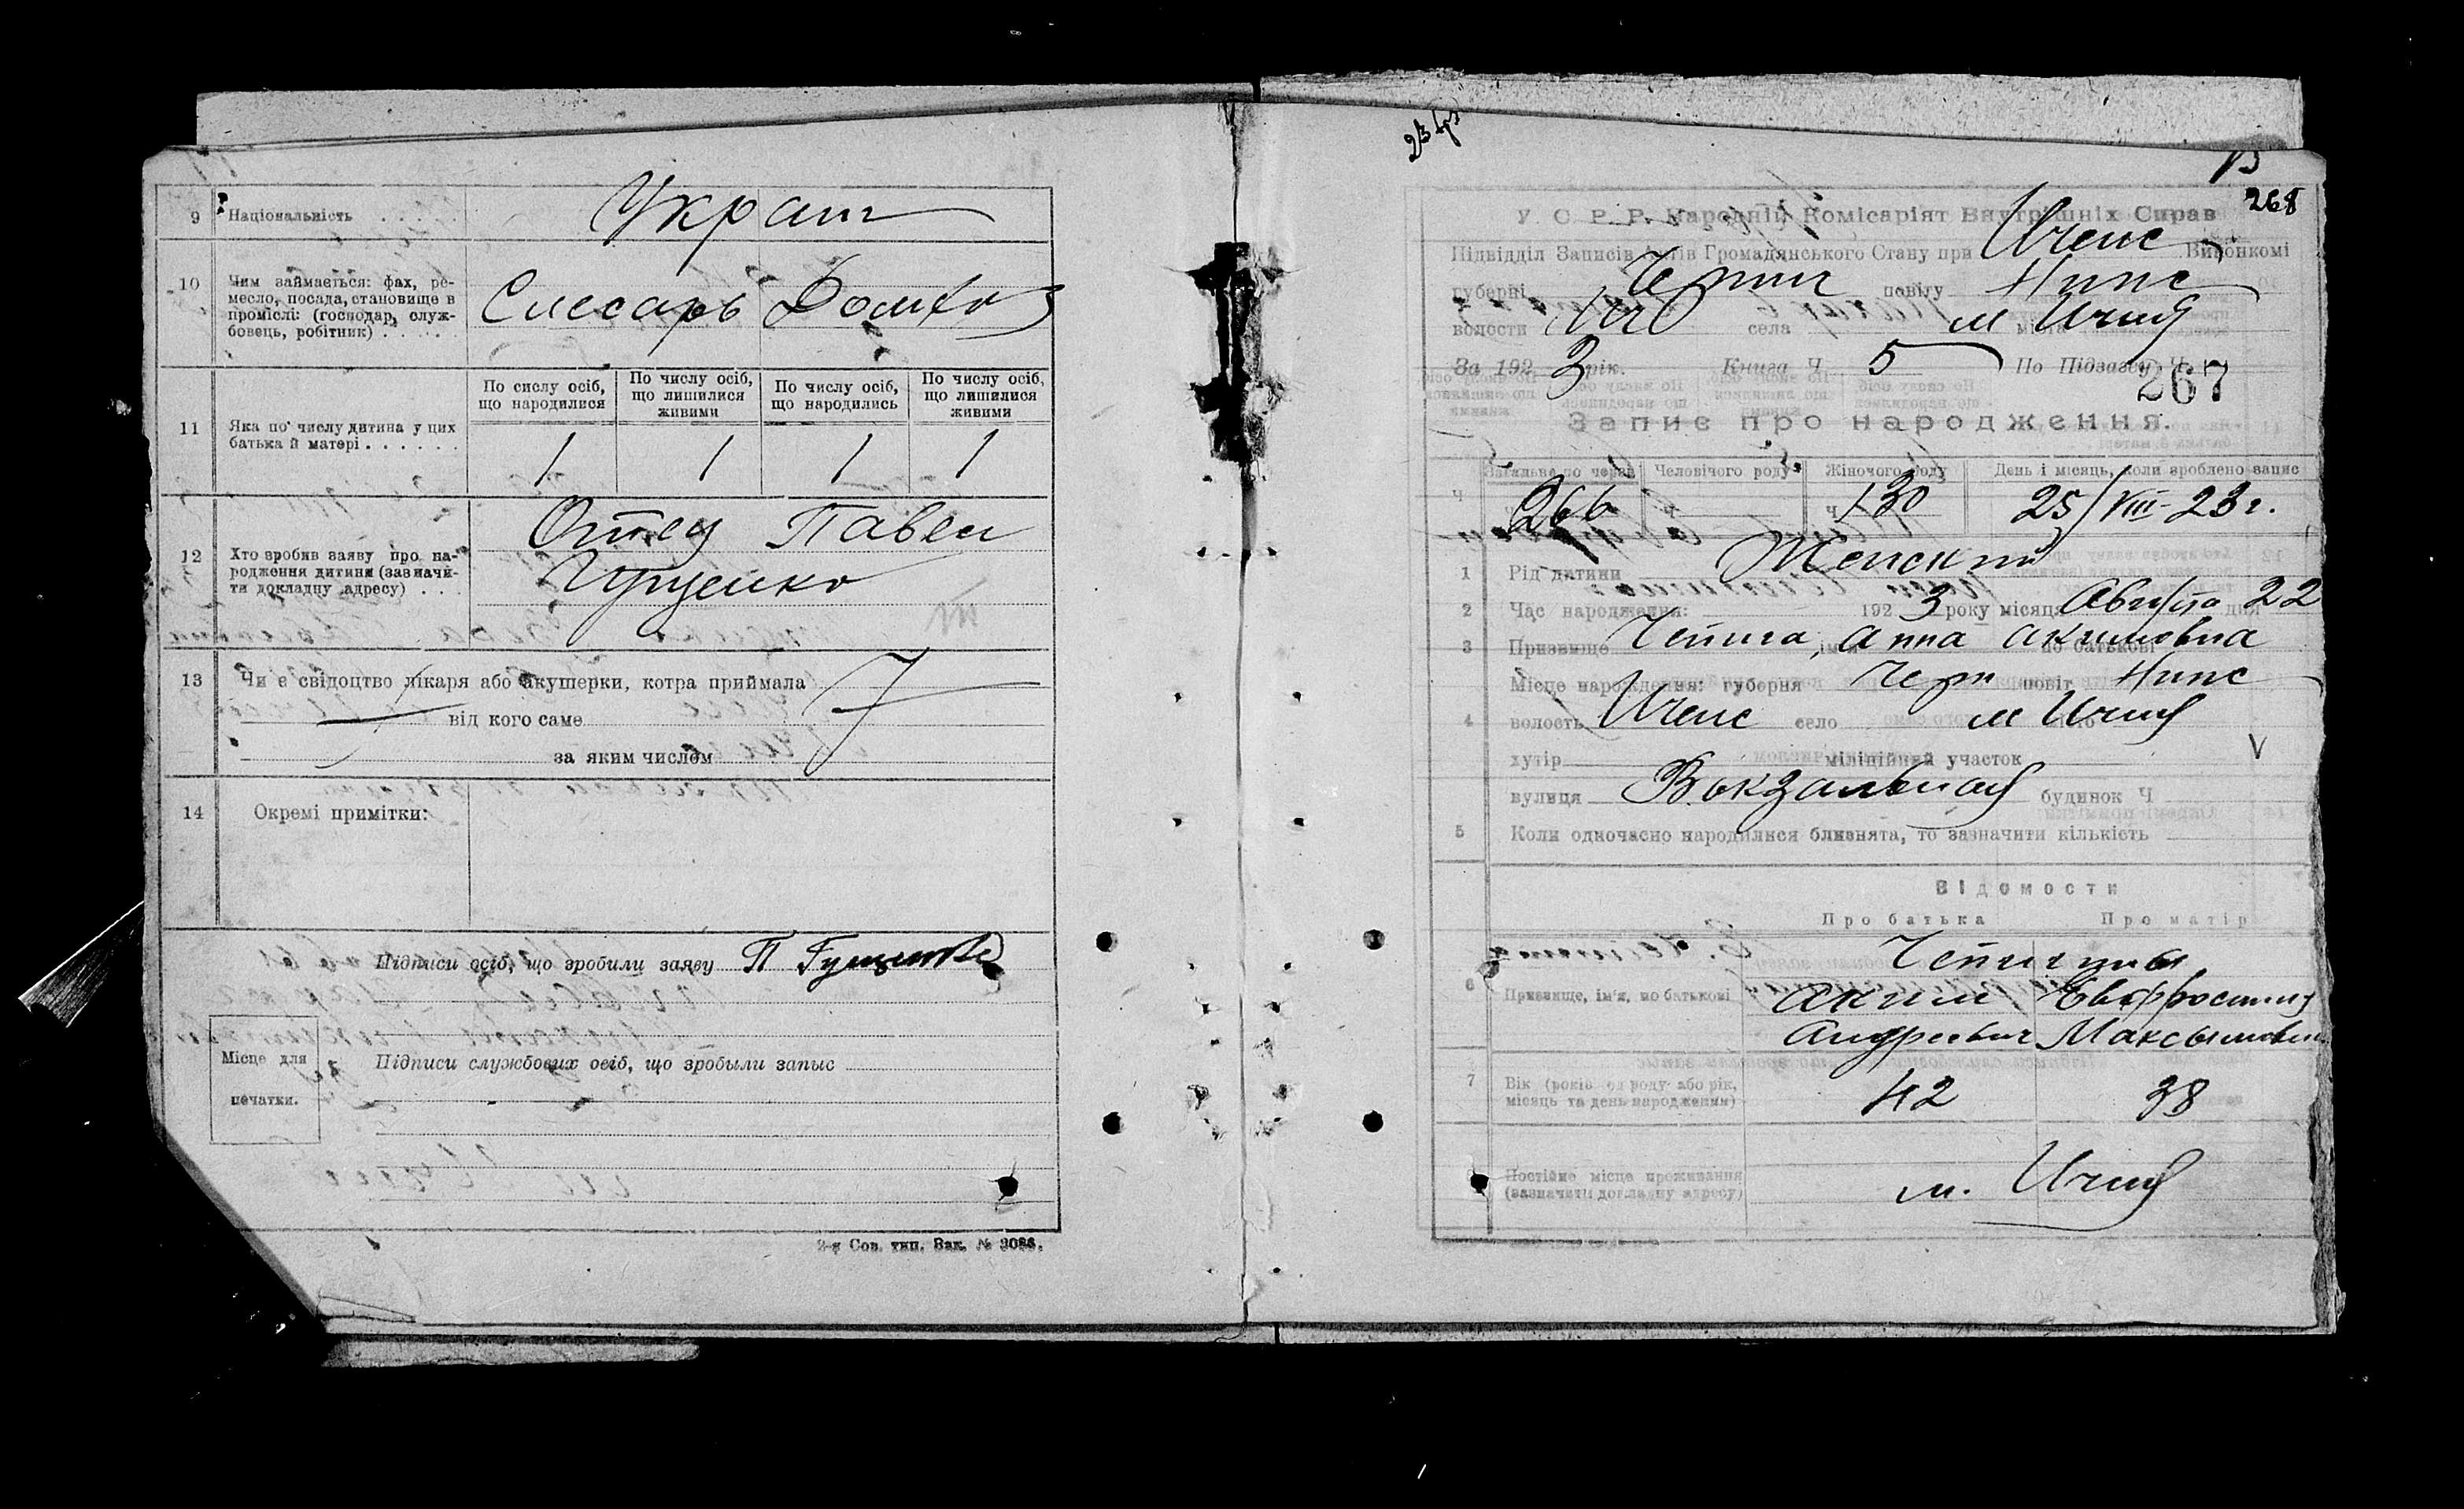 9 Національність . . . . . Украин
10 Чим займається: фах, ре-
месло, посада, становище в
проміслі: (господар, служ-
бовець, робітник) . . . . .
Слесарь Домхоз
11 Яка по числу дитина у цих
батька й матері . . . . . .
По сислу осіб,
що народилися
По числу осіб,
що лишилися
живими
По числу осіб,
що народились
По числу осіб,
що лишилися
живими
1 1 1 1
12 Хто зробив заяву про на-
родження дитини (зазначи-
ти докладну адресу) . . .
Отец Павел
Гущенко
13 Чи є свідоцтво лікаря або акушерки, котра приймала
від кого саме
за яким числом
14 Окремі примітки:
Підписи осіб, що зробили заяву П Гущенко
Місце для
печатки.
Підписи службових осіб, що зробыли запыс
2-я Сов. тип. Зак. № 3086.
268
У. С. Р. Р. Народній Комісаріят Внутрішніх Справ
Підвідділ Записів Актів Громадянського Стану при Иченс Виконкомі
губерні Черниг повіту Нипс
волости Ич села м Ичня
За 1923 рік. Книга Ч 5 По Підзагсу Ч.
267
Запис про народження.
Загальне по черзі Человічого роду Жіночого роду День і місяць, коли зроблено запис
Ч 266 Ч Ч 130 25/VIII-23 г.
1 Рід дитини Женский
2 Час народження: 1923 року місяця Августа дня 22
3 Призвище Чепига, ім'я Анна по батькові Акимовна
4 Місце народження: губерня Черн повіт Нипс
волость Иченс село м Ичня
хутір міліційний участок
V
вулиця Вокзальная будинок Ч
5 Коли одночасно народилися близнята, то зазначити кількість
Відомости
Про батька Про матір
6 Призвище, ім'я, по батькові
Чепигины
Аким Евфросиния
Андреевич Максымовна
7 Вік (років од роду або рік,
місяць та день народження)
42 38
Постійне місце проживання
(зазначити докладну адресу)
м. Ичня